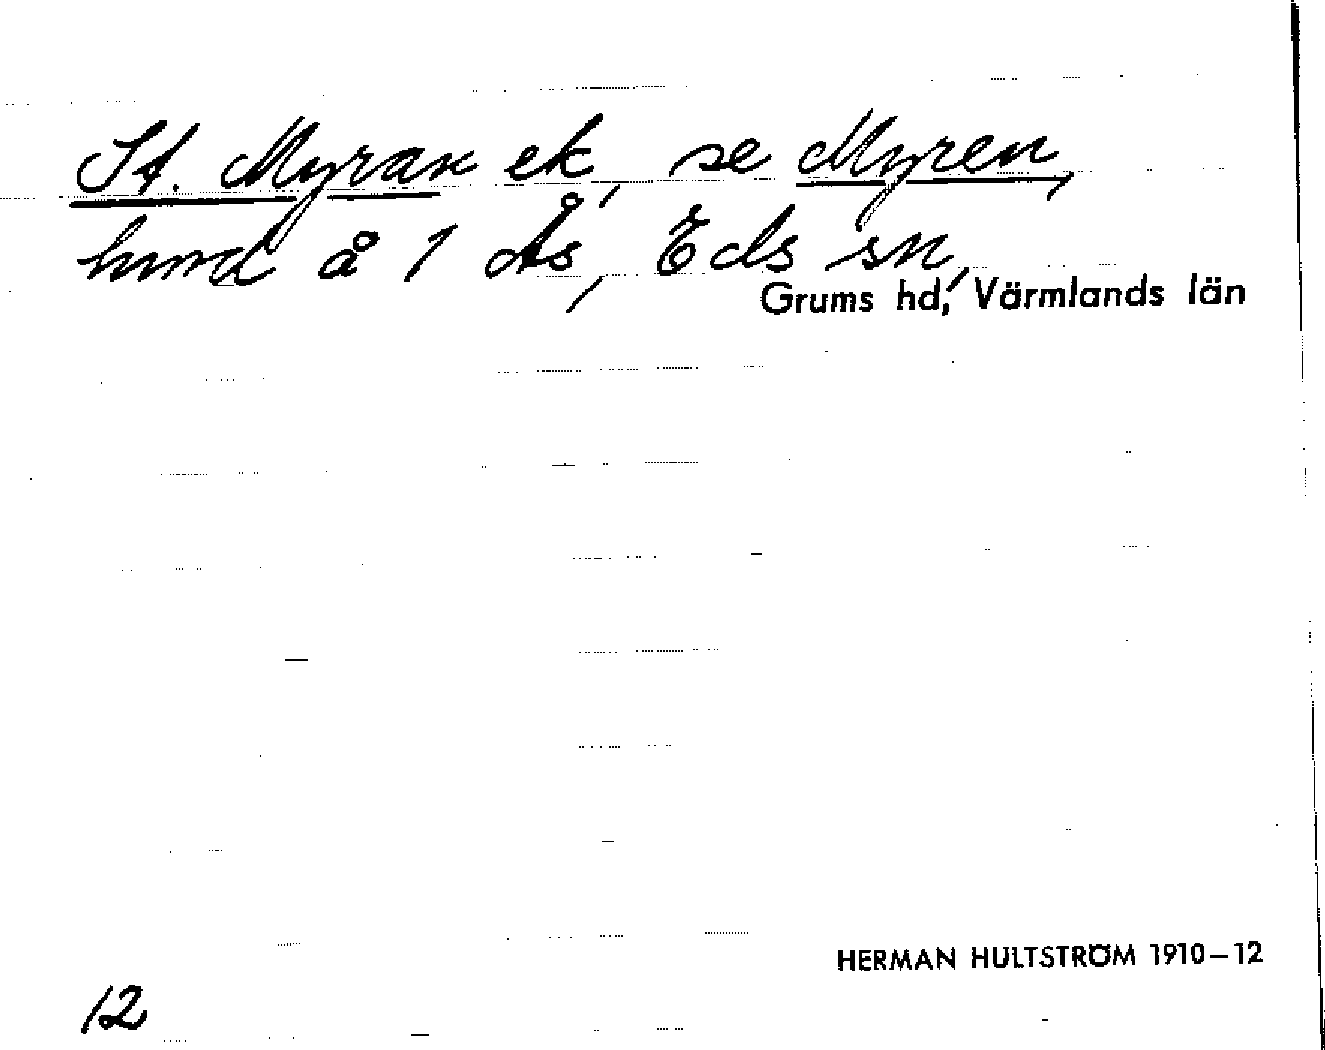 St. Myran ek, se Myren,
hmd å 1 Ås, Eds sn,
Grums hd, Värmlands län
HERMAN HULTSTRÖM 1910–12
12